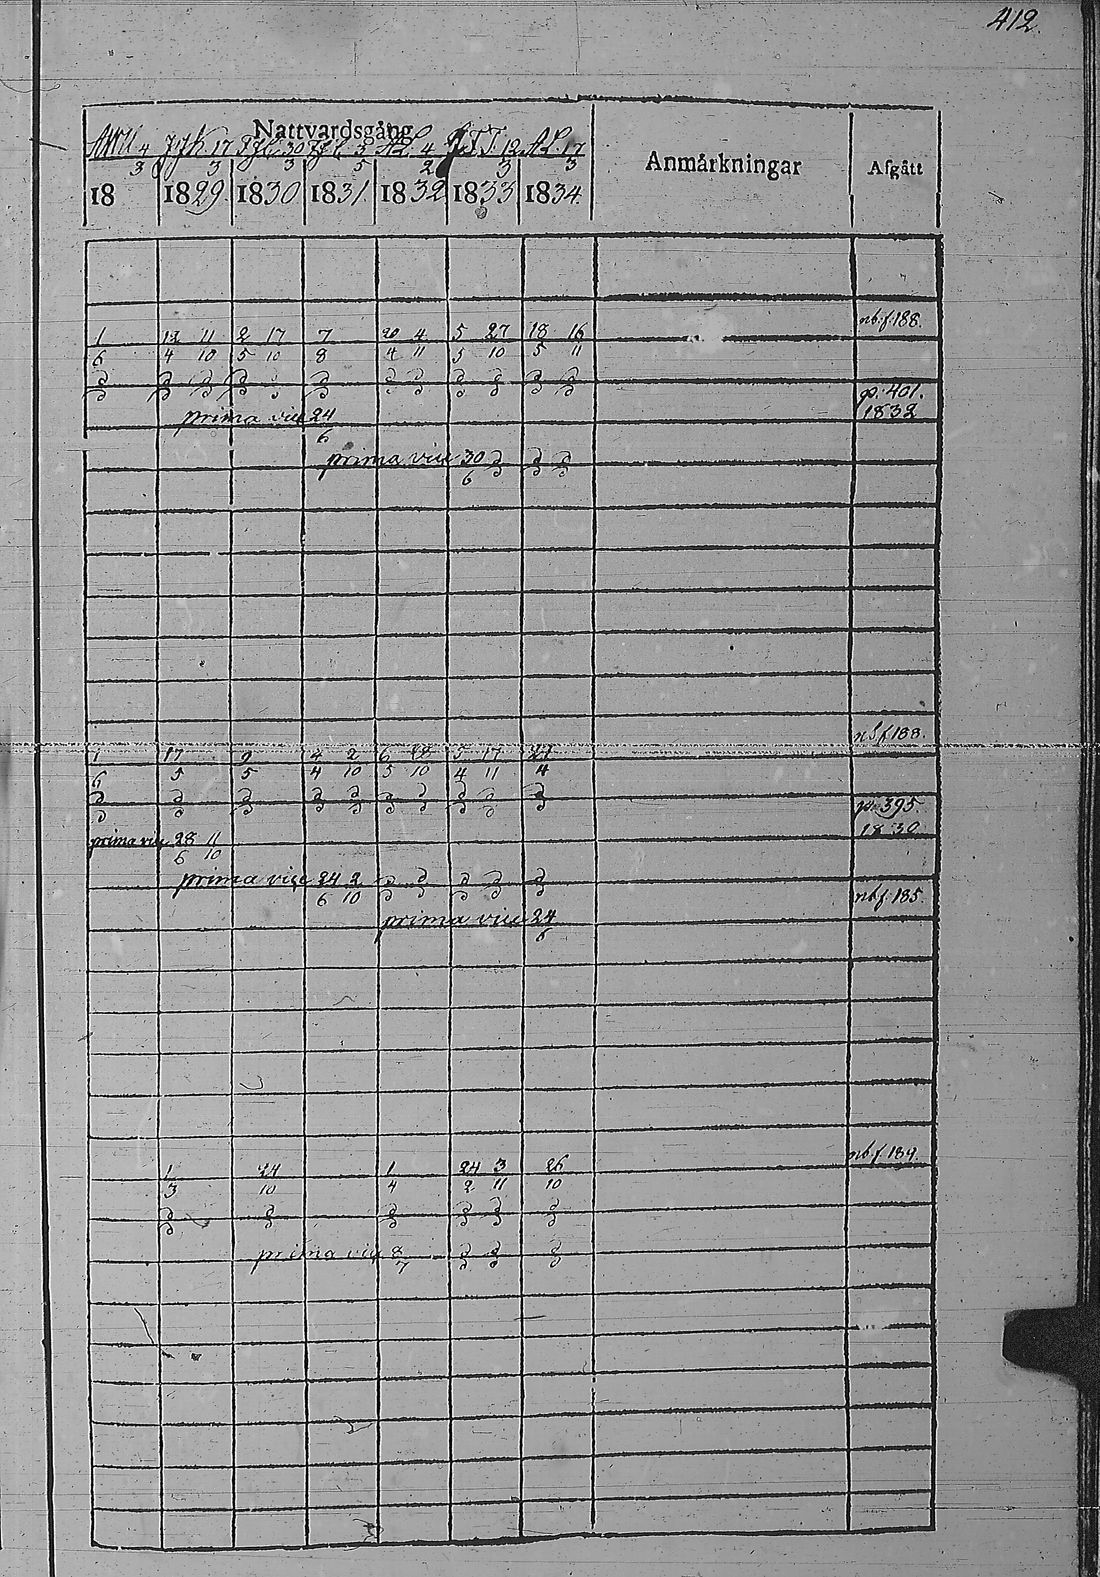 412.
Nattvardsgång
4 17 30 3 4 12 A.L. 17
3 3 3 5 2 3 3
18 1829. 1830 1831. 1832 1833 1834.
Anmärkningar
Afgått
nb.f.188.
1 12 11 2 17 7 20 4 5 27 18 16
6 4 10 5 10 8 4 11 5 10 5 11
p. 401.
prima vice 24 1832
6
prima vice 30
6
188.
1 17 9 4 2 6 28 5 17 27
6 5 5 4 10 5 10 4 11 4
p. 395.
prima vice 28 11 1830
6 10
prima vice 24 2
6 10 nb.f.185.
prima vice 24
6
nb.f.184.
1 24 1 24 3 26
3 10 4 2 11 10
prima vice 8
7